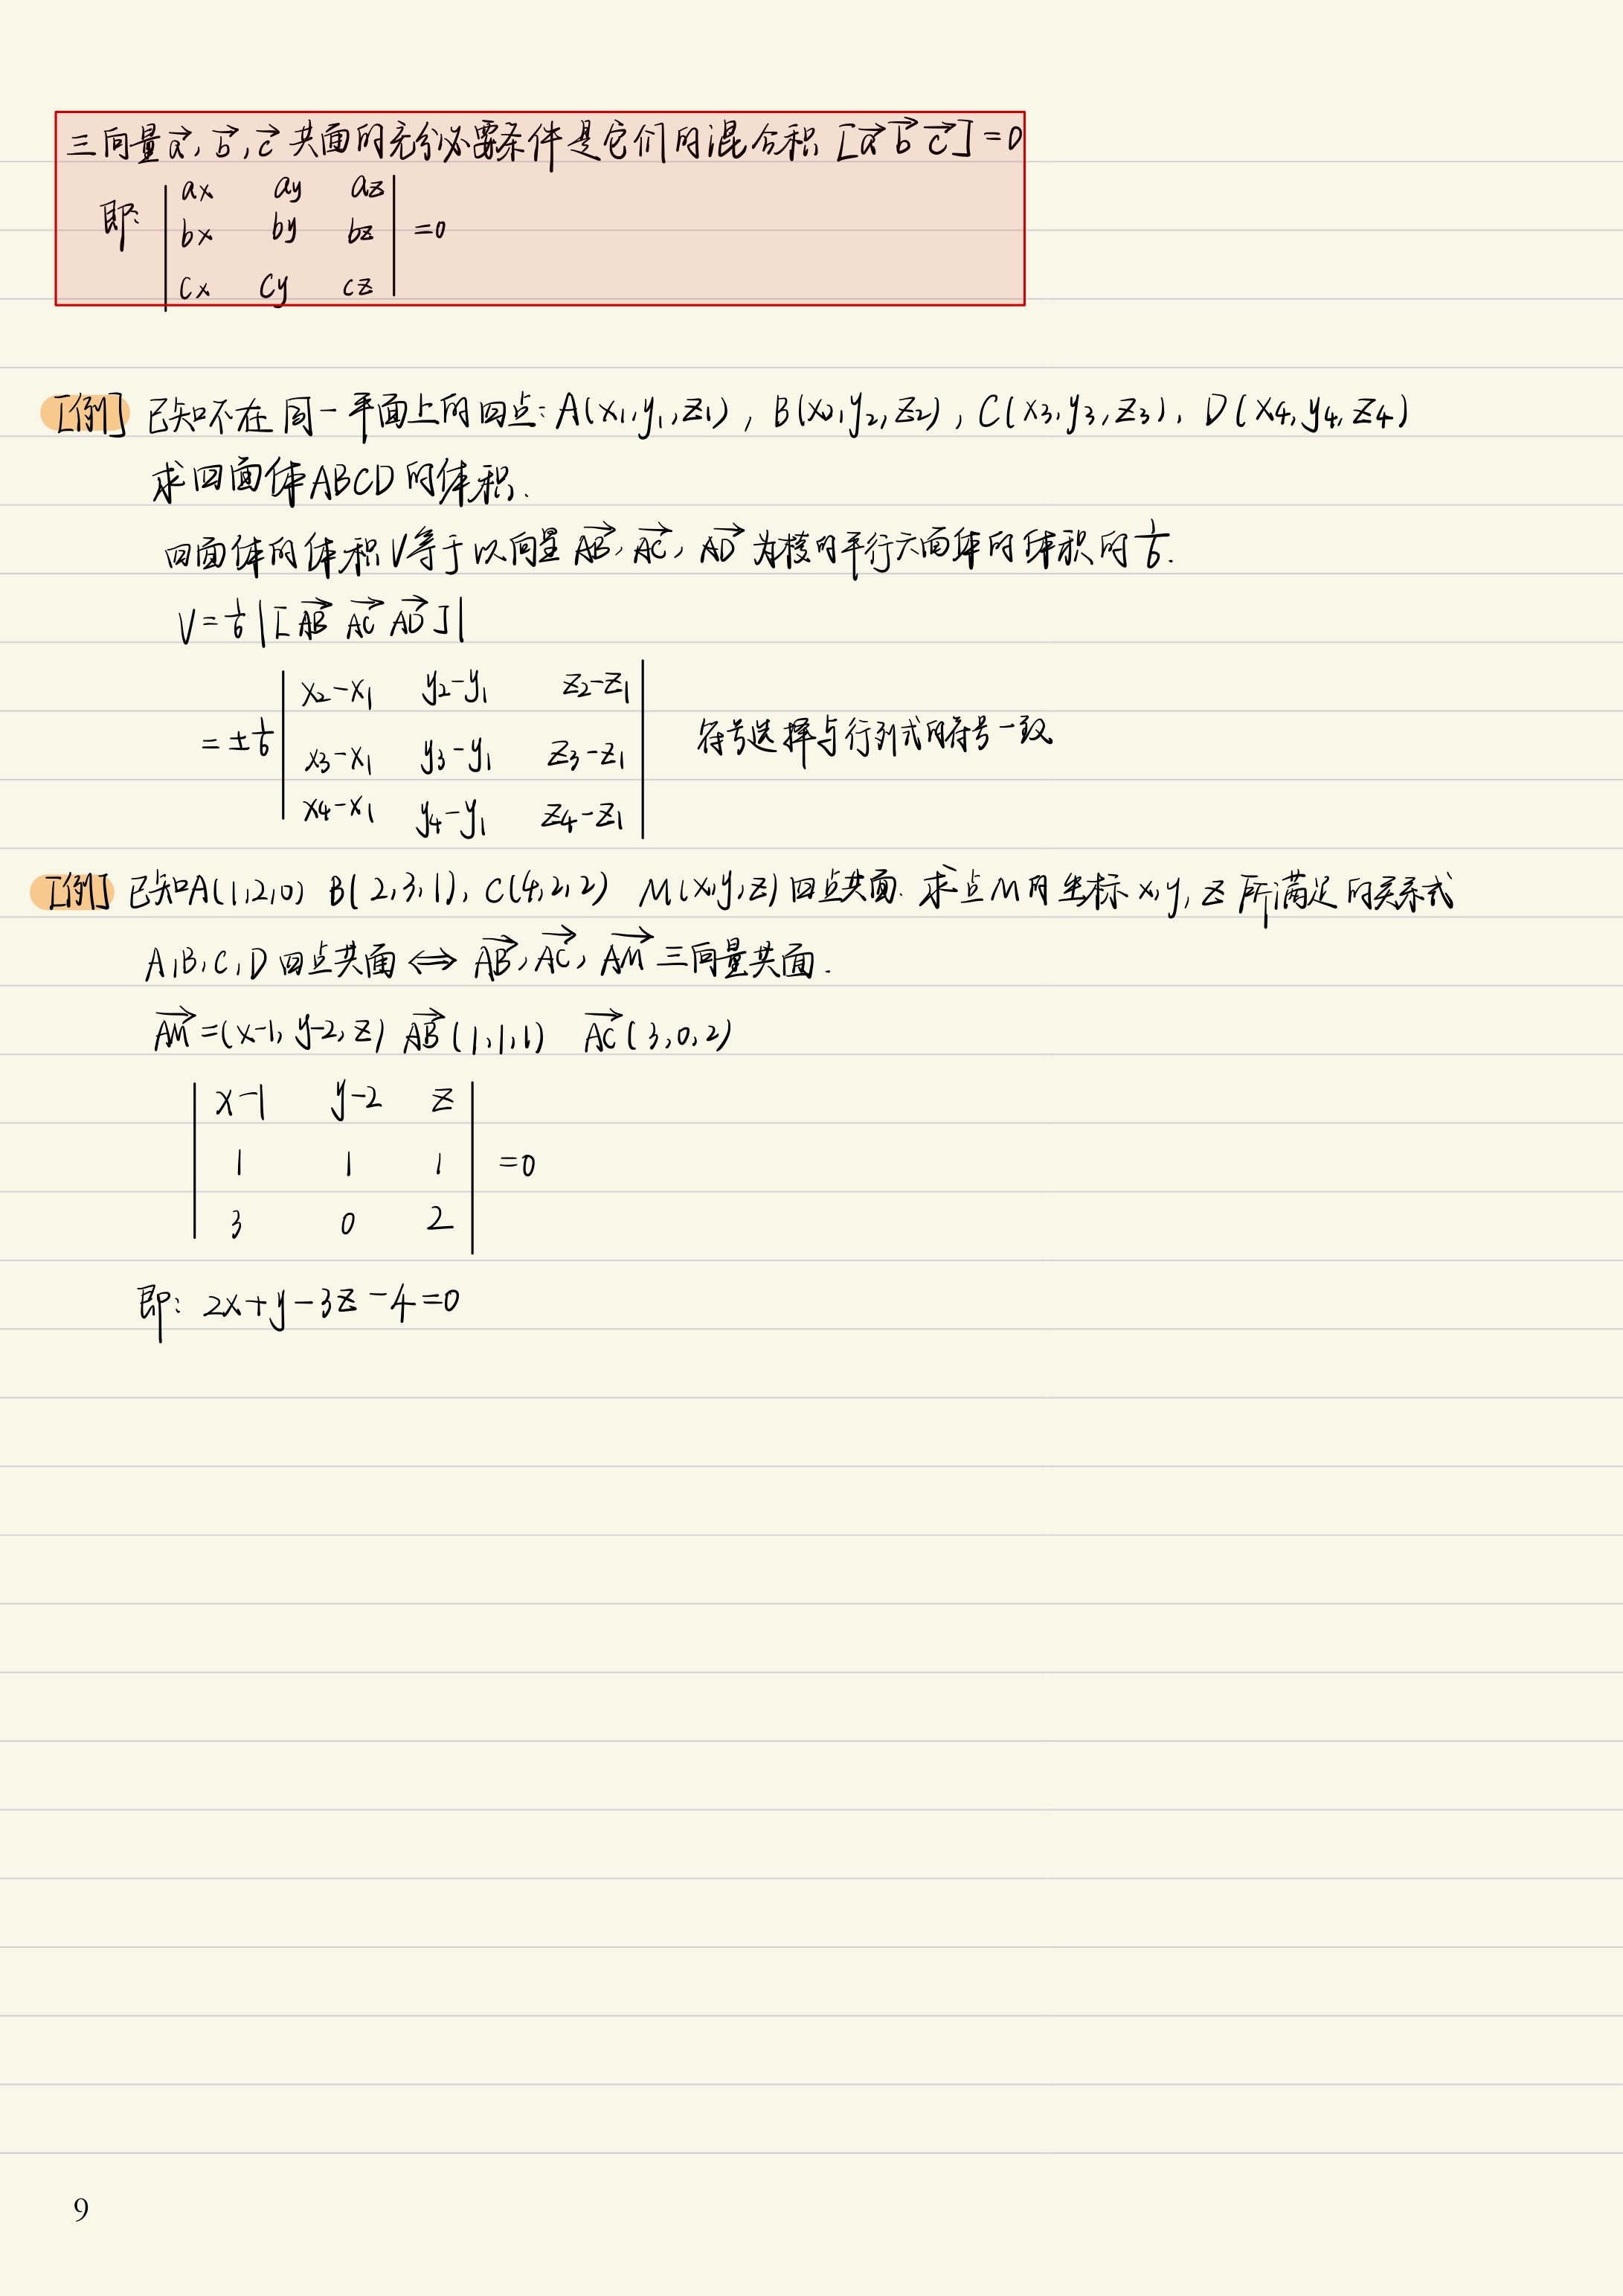 三向量a⃗, b⃗, c⃗ 共面的充分必要条件是它们的混合积 [a⃗ b⃗ c⃗]=0
即: | ax ay az |
| bx by bz | =0
| cx cy cz |
[例] 已知不在同一平面上的四点: A(x₁,y₁,z₁), B(x₂,y₂,z₂), C(x₃,y₃,z₃), D(x₄,y₄,z₄)
求四面体ABCD的体积.
四面体的体积V等于以向量 AB→, AC→, AD→ 为棱的平行六面体的体积的1/6.
V=1/6|[AB→ AC→ AD→]|
| x₂-x₁ y₂-y₁ z₂-z₁ |
=±1/6 | x₃-x₁ y₃-y₁ z₃-z₁ | 符号选择与行列式的符号一致
| x₄-x₁ y₄-y₁ z₄-z₁ |
[例] 已知A(1,2,0) B(2,3,1), C(4,2,2) M(x,y,z)四点共面. 求点M的坐标x,y,z所满足的关系式
A,B,C,D四点共面 ⟺ AB→, AC→, AM→ 三向量共面.
AM→=(x-1, y-2, z) AB→(1,1,1) AC→(3,0,2)
| x-1 y-2 z |
| 1 1 1 | =0
| 3 0 2 |
即: 2x+y-3z-4=0
9